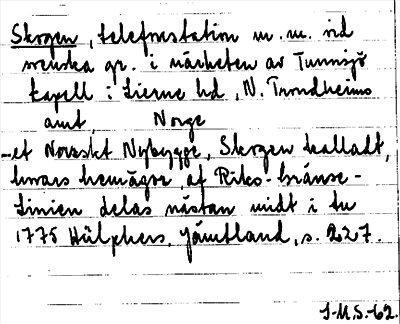 Skogen, telefonstation m. m. vid
svenska gr. i närheten av Tunnsjö
kapell i Lierne hd, N. Trondheims
amt, Norge
-et Norskt Nybygge, Skogen kalladt,
hwars hemägor af Riks-Gränse-
Linien delas nästan midt i tu
1775 Hülphers, Jämtland, s. 227.
J.M.S.-62.